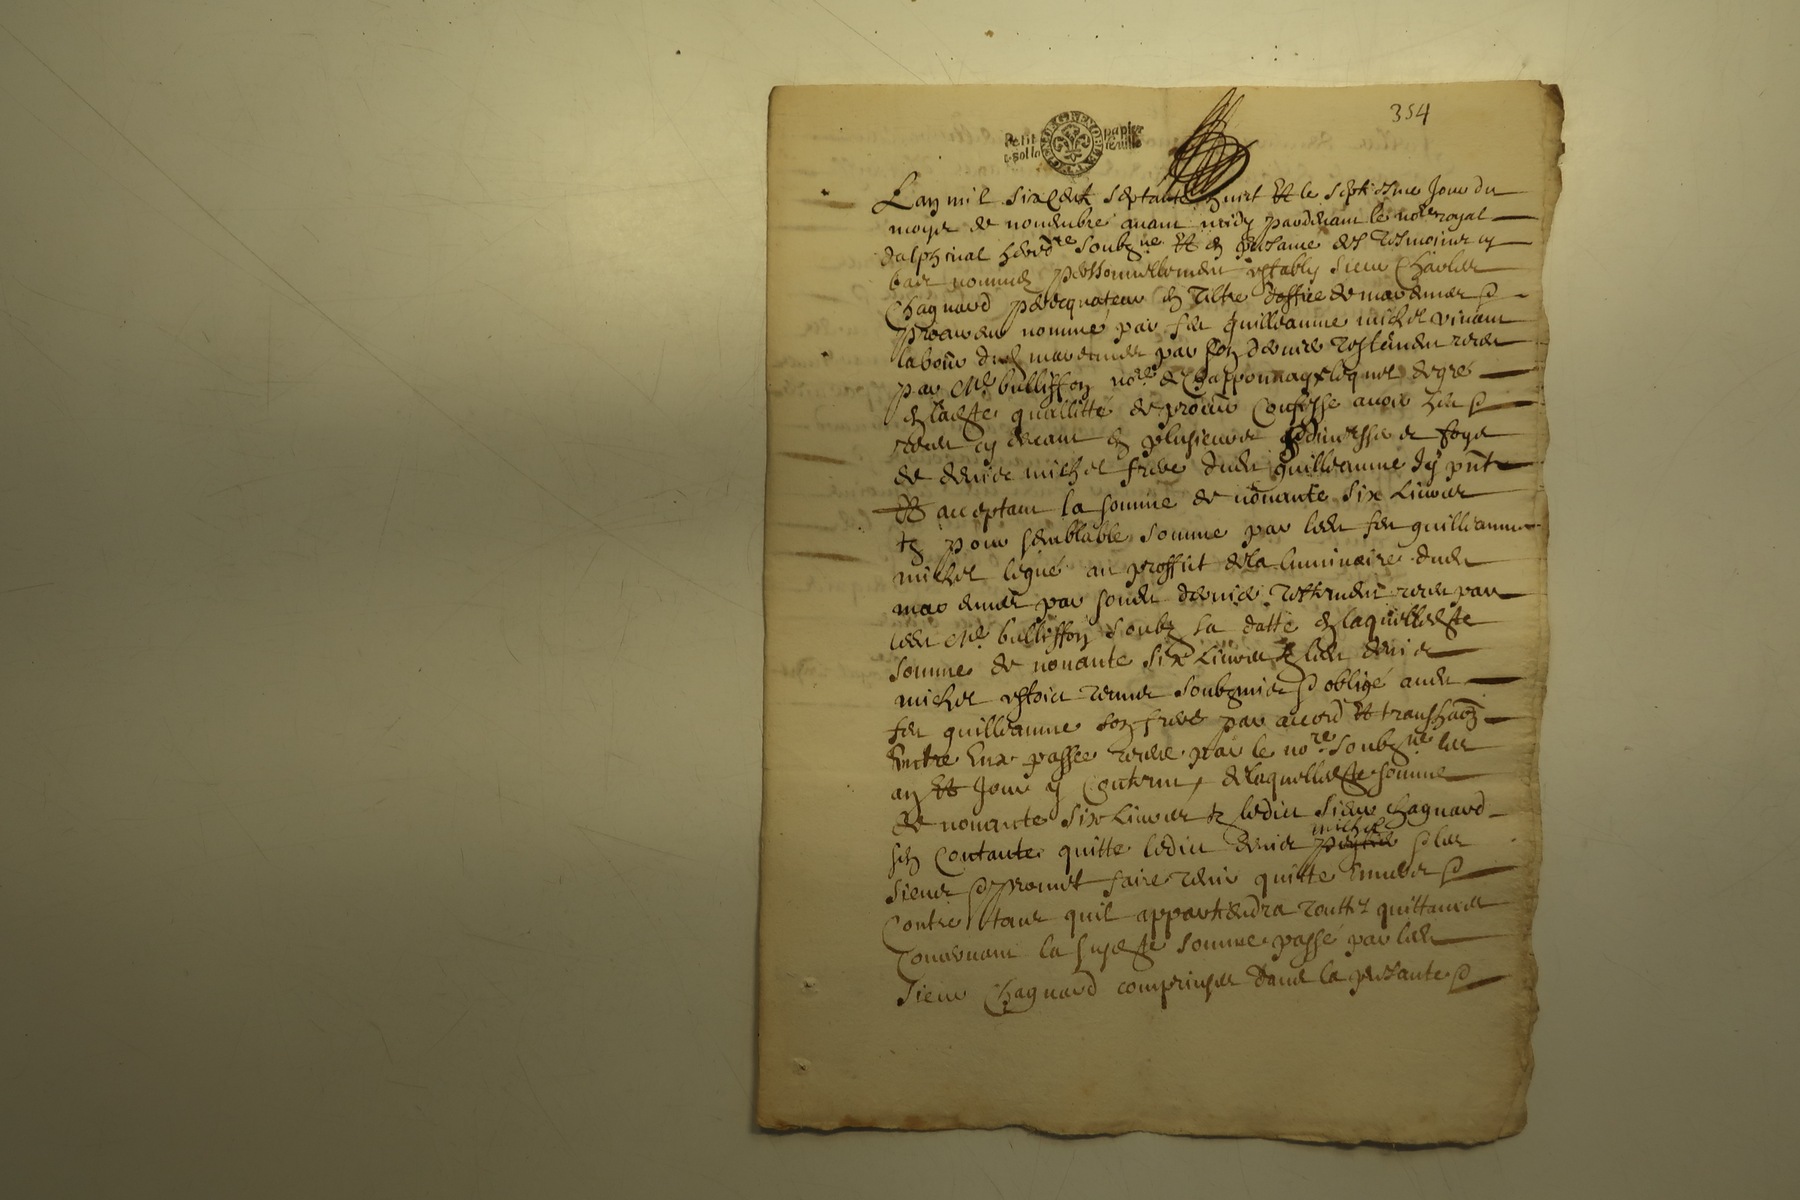 354
Petit papier
feuille
L'an mil six cent septante huict et le septiesme jour du
moys de novembre avant midy pardevant le no.re royal
dalphinal hered.re soubz.ne et en presance des tesmoins cy
bas nommés personnellement estably sieur Charles
Chagnard perequateur en tiltre doffice de marennes &
procureur nommé par feu guilleaume michel vivant
labour dud marennes par son dernier testament receu
par M.e bulliffon no.re de Chapponnay lequel de gré
en ladte quallitté de procur confesse avoir heu &
receu cy devant en plusieurs & diverses foys
de denis michel frere dudt guilleaume Icy pnt
et acceptant la somme de nonante six livres
tz pour semblable somme par ledt feu guilleaume
michel legué au proffit de la luminaire dudt
marennes par sondt dernier testament receu par
ledt M.e bulliffon soubz sa datte de laquelle dte
somme de nonante six livres tz ledt denis
michel estoit tenu & obligé audt
feu guilleaume son frere par accord et transaon
entre eux passée receue par le no.re soubz.ne les
an et jour y contenu, de laquelledte somme
de nonante six livres tz ledict sieur chagnard
sen contante quitte ledict denis michel & les
siens & promet faire tenir quitte envers &
contre tous quil appartiendra touttes quittances
concernant la susdte somme passé par ledt
sieur Chagnard comprinses dans la presante &